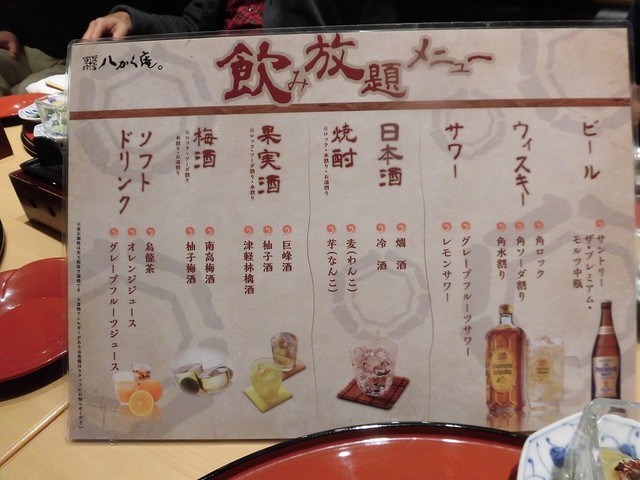 八かく庵。
飲み放題メニュー
ビール
サントリー
ザ・プレミアム・
モルツ中瓶
ウィスキー
角ロック
角ソーダ割り
角水割り
サワー
グレープフルーツサワー
レモンサワー
日本酒
燗酒
冷酒
焼酎
※ロック・水割り・お湯割り
麦(わんこ)
芋(なんこ)
果実酒
※ロック・ソーダ割り・水割り
巨峰酒
柚子酒
津軽林檎酒
梅酒
※ロック・ソーダ割り
水割り・お湯割り
南高梅酒
柚子梅酒
ソフト
ドリンク
烏龍茶
オレンジジュース
グレープフルーツジュース